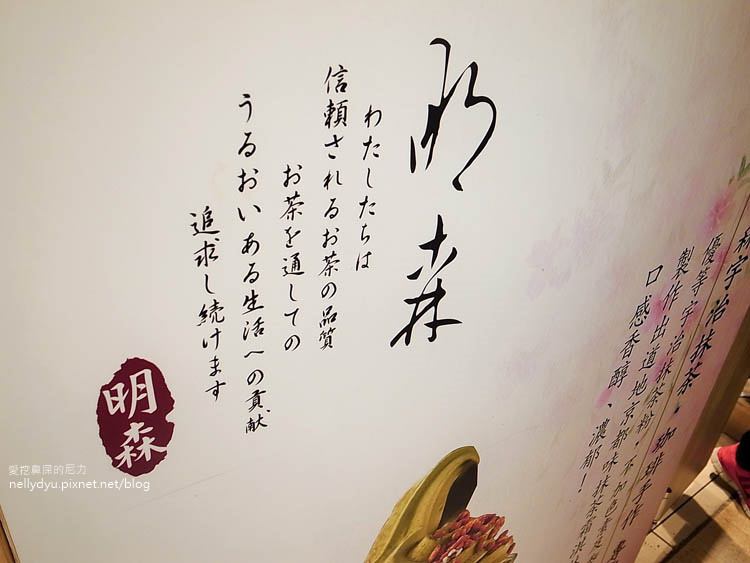 明森
わたしたちは
信頼されるお茶の品質
お茶を通しての
うるおいある生活への貢献
追求し続けます
明森
宇治抹茶.咖啡手作
優等宇治抹茶粉.不加色素
製作出道地京都味抹茶霜淇
口感香醇、濃郁!
愛挖鼻屎的尼力
nellydyu.pixnet.net/blog